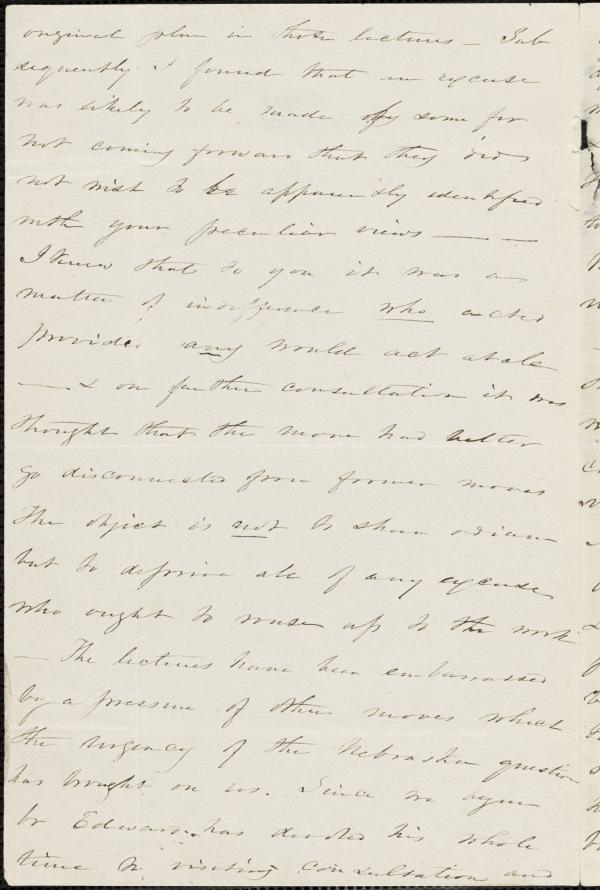 original plan in those lectures — Sub
sequently I found that an excuse
was likely to be made by some for
not coming forward that they did
not wish to be apparently identified
with your peculiar views — —
I knew that to you it was a
matter of indifference who acted
provided any would act at all
— & on further consultation it was
thought that the move had better
go disconnected from former moves
The object is not to shun odium
but to deprive all of any excuse
who ought to rouse up to the work
— The lectures have been embarrassed
by a pressure of other moves which
the urgency of the Nebraska question
has brought on us. Since we
br Edward has devoted his whole
time to visiting consultation and